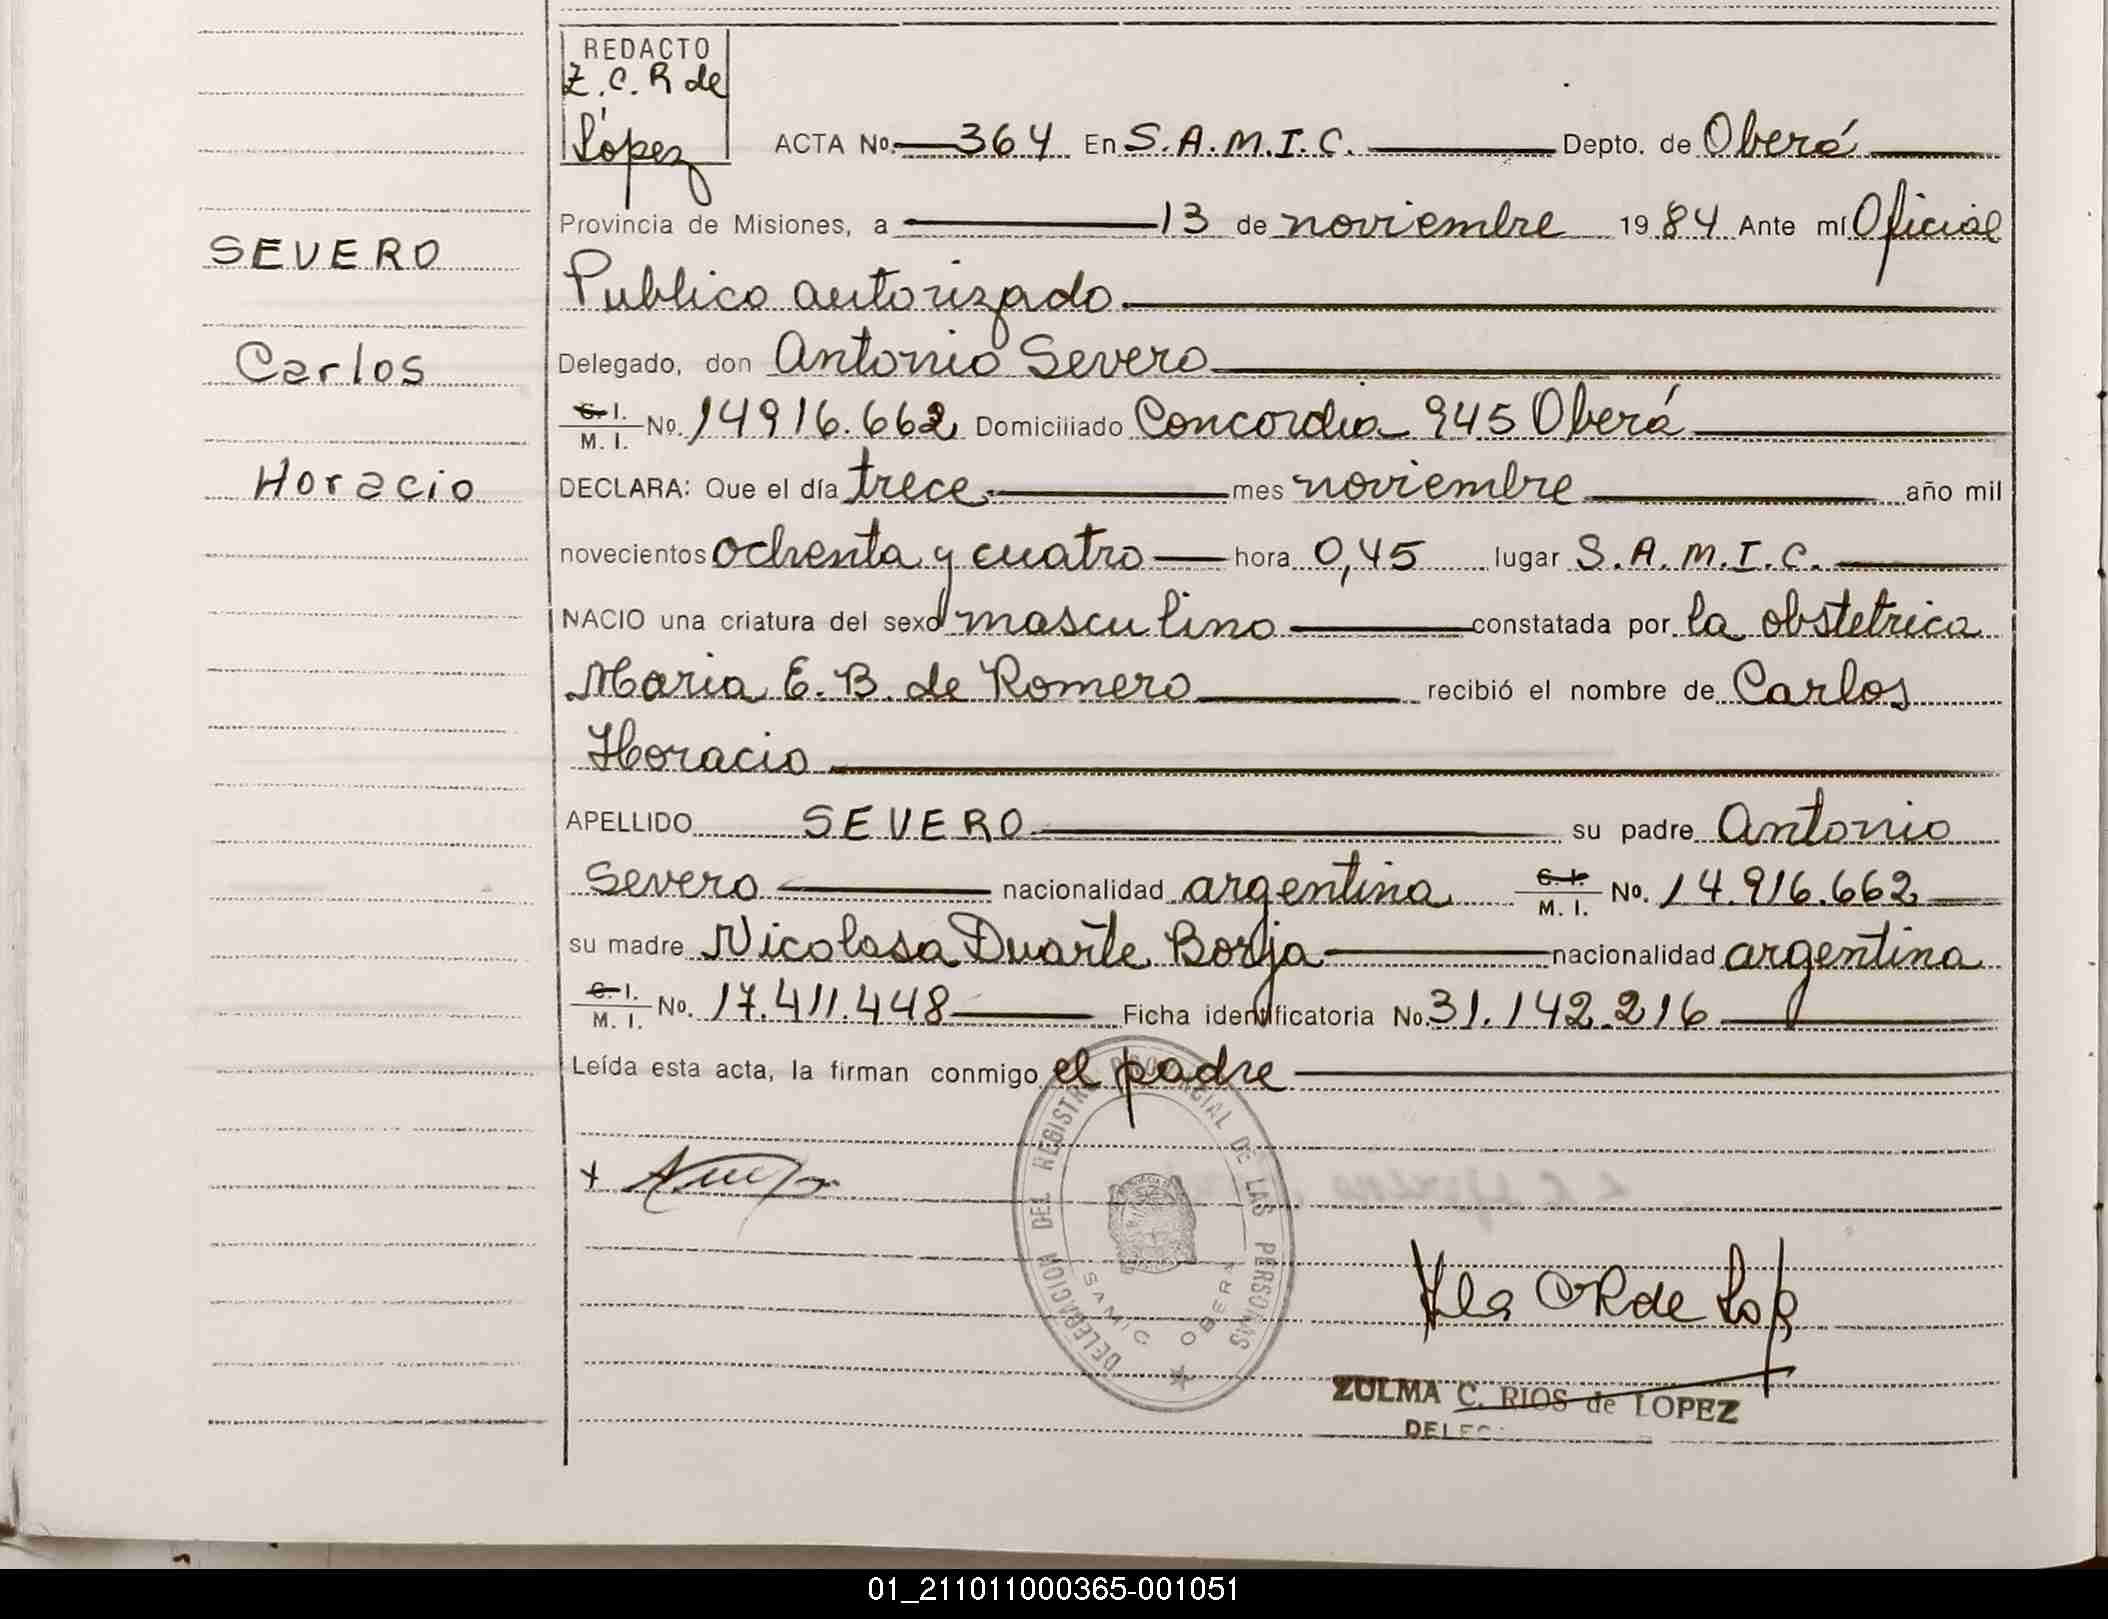 REDACTO
Z. C. R de
López
ACTA No. 364 En S.A.M.I.C. Depto. de Oberá
Provincia de Misiones, a 13 de noviembre 1984 Ante mí Oficial
Publico autorizado.
Delegado, don Antonio Severo
C. I. M. I. No. 14916.662 Domiciliado Concordia 945 Oberá
DECLARA: Que el día trece mes noviembre año mil
novecientos ochenta y cuatro hora 0,45 lugar S.A.M.I.C.
NACIO una criatura del sexo masculino constatada por la obstetrica
Maria E. B. de Romero recibió el nombre de Carlos
Horacio
APELLIDO SEVERO su padre Antonio
Severo nacionalidad argentina C. I. M. I. No. 14.916.662
su madre Nicolasa Duarte Borja nacionalidad argentina
C. I. M. I. No. 17.411.448 Ficha identificatoria No. 31.142.216
Leída esta acta, la firman conmigo el padre
SEVERO
Carlos
Horacio
DELEGACION DEL REGISTRO PROVINCIAL DE LAS PERSONAS
SAMIC OBERA
ZULMA C. RIOS de LOPEZ
01_211011000365-001051